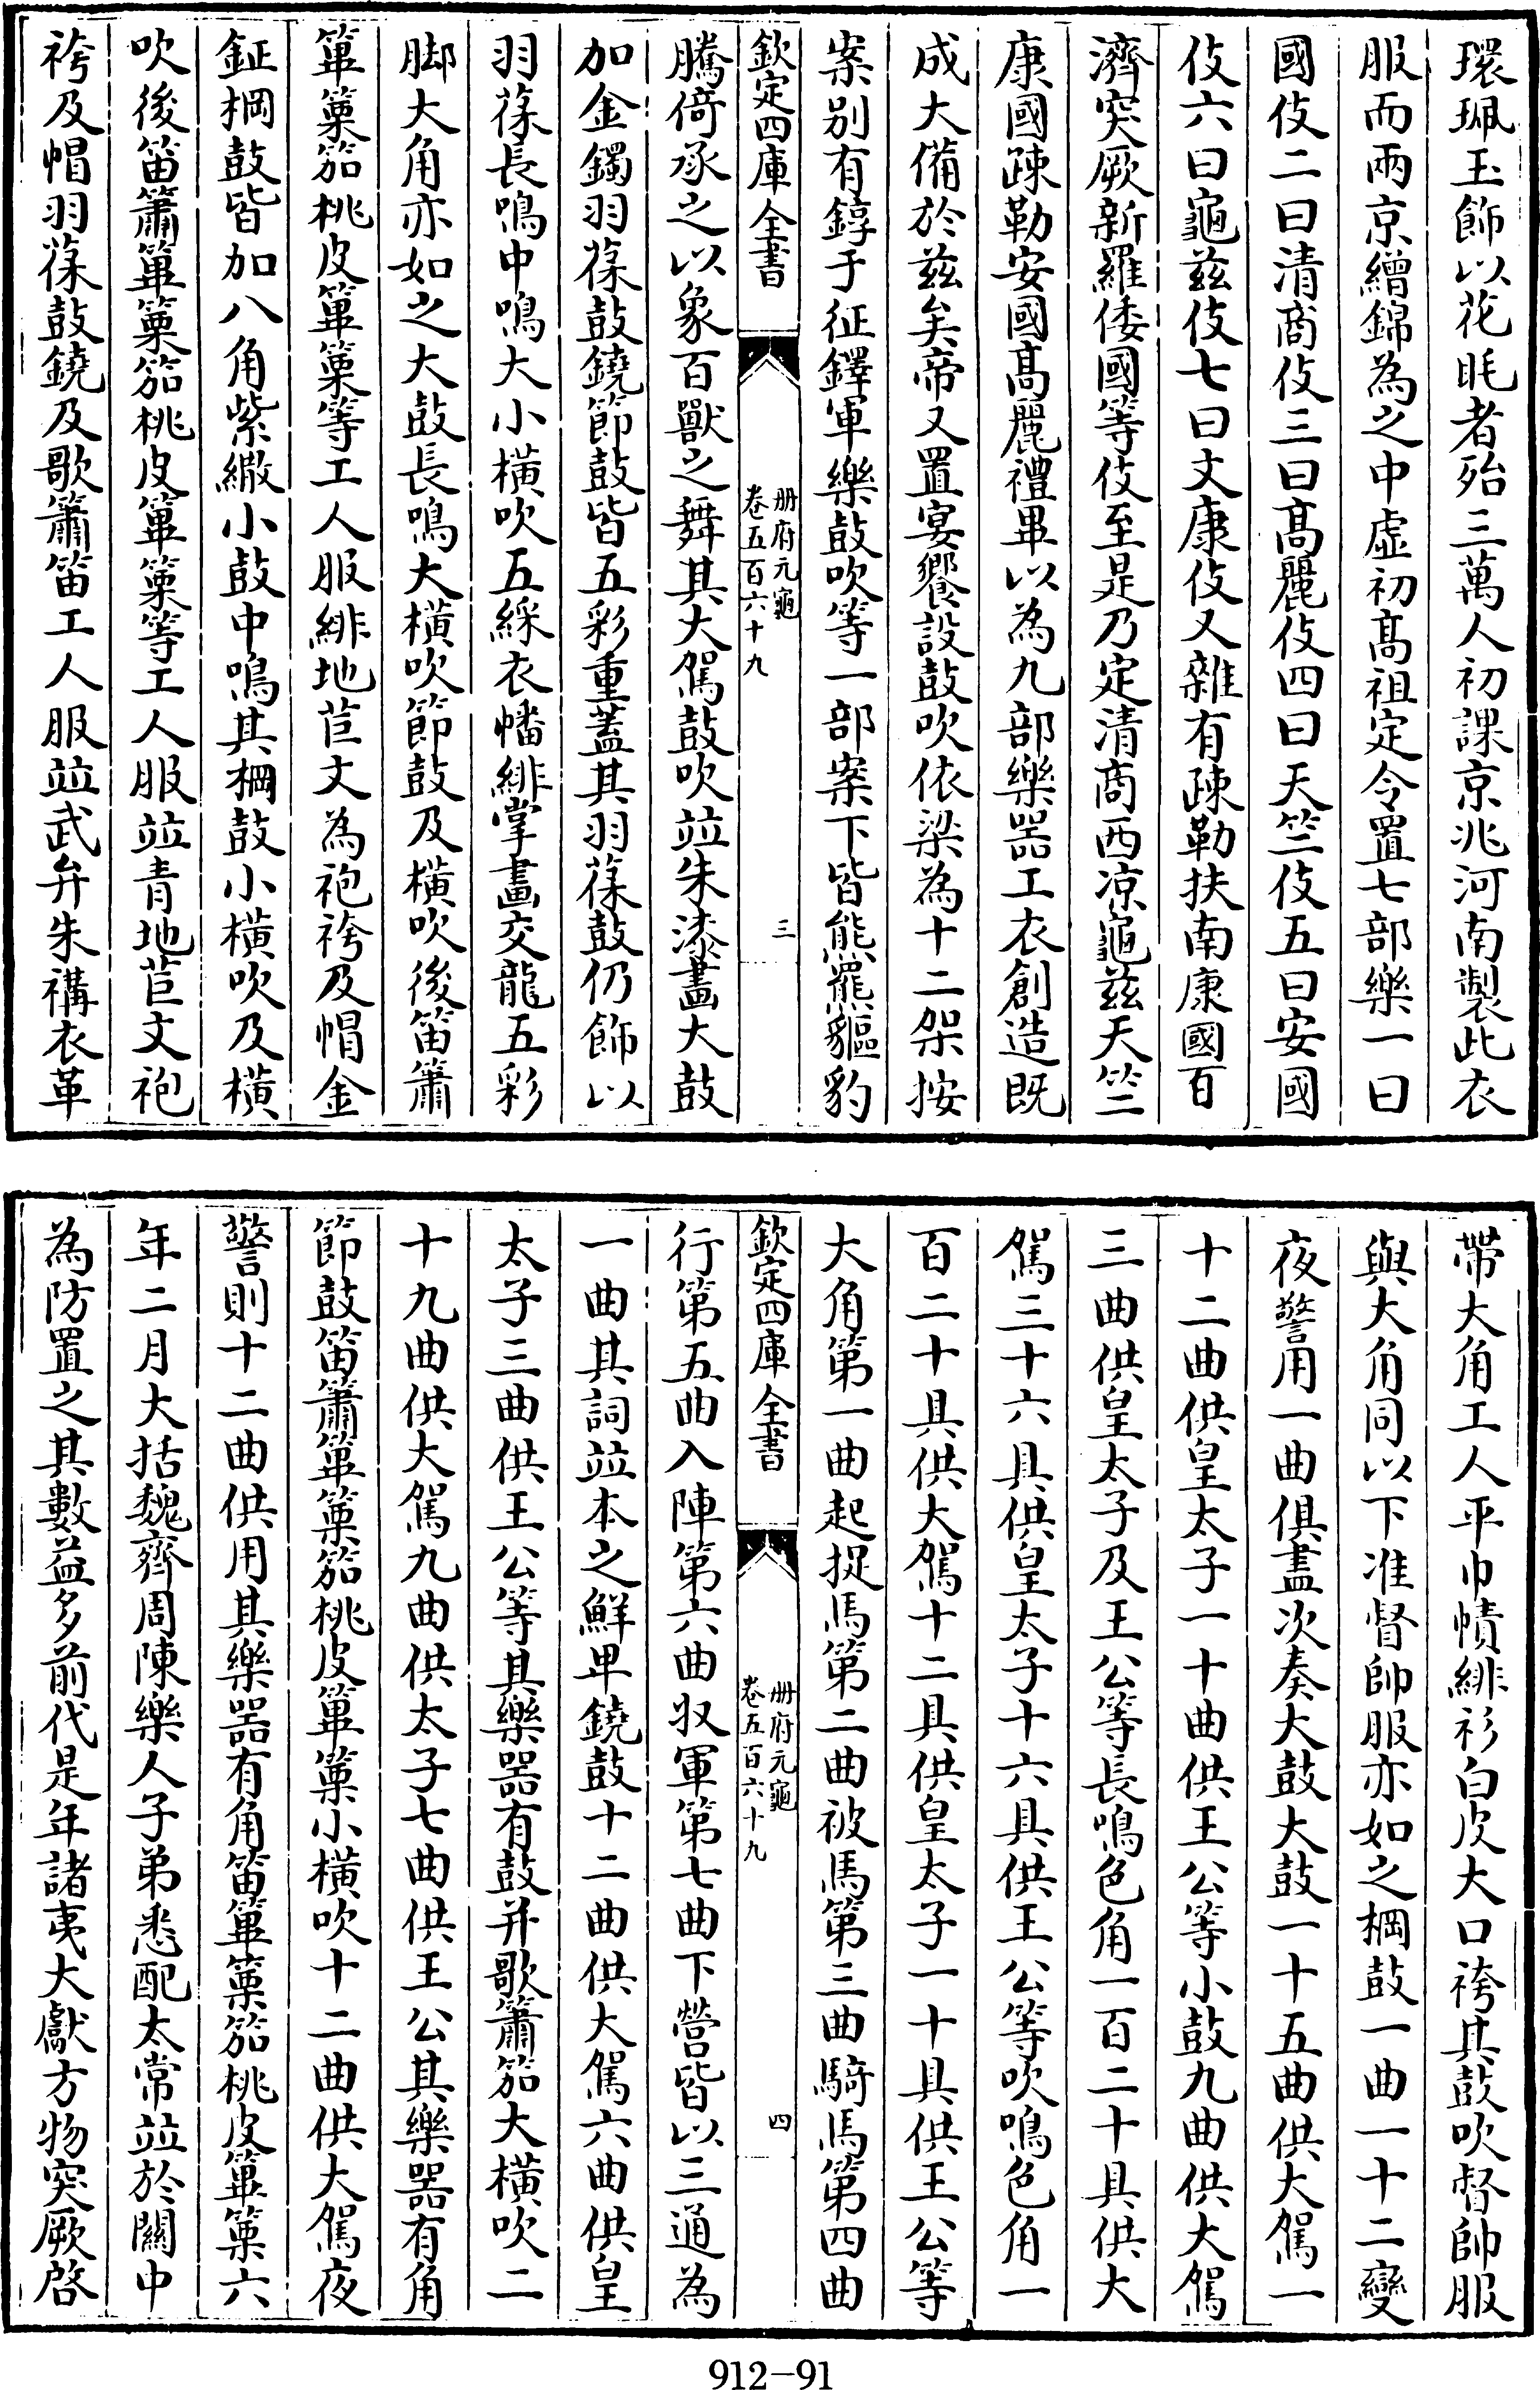 環珮玉飾以花眊者殆三萬人初課京兆河南製此衣
服而兩京繒錦為之中虛初髙祖定令置七部樂一曰
國伎二曰清商伎三曰髙麗伎四曰天竺伎五曰安國
伎六曰龜兹伎七曰文康伎又雜有疎勒扶南康國百
濟突厥新羅倭國等伎至是乃定清商西凉龜兹天竺
康國疎勒安國髙麗禮畢以為九部樂器工衣創造既
成大備於兹矣帝又置宴饗設鼓吹依梁為十二架按
案别有錞于征鐸軍樂鼓吹等一部案下皆熊羆貙豹
欽定四庫全書
册府元龜
卷五百六十九
三
騰倚承之以象百獸之舞其大駕鼓吹竝朱漆畫大鼓
加金鐲羽葆鼓鐃節鼓皆五彩重蓋其羽葆鼓仍飾以
羽葆長鳴中鳴大小橫吹五綵衣幡緋掌畫交龍五彩
脚大角亦如之大鼓長鳴大橫吹節鼓及橫吹後笛簫
篳篥笳桃皮篳篥等工人服緋地苣文為袍袴及帽金
鉦棡鼓皆加八角紫繖小鼓中鳴其棡鼓小橫吹及橫
吹後笛簫篳篥笳桃皮篳篥等工人服竝青地苣文袍
袴及帽羽葆鼓鐃及歌簫笛工人服竝武弁朱褠衣革
帶大角工人平巾幘緋衫白皮大口袴其鼓吹督帥服
與大角同以下准督帥服亦如之棡鼓一曲一十二變
夜警用一曲俱盡次奏大鼓大鼓一十五曲供大駕一
十二曲供皇太子一十曲供王公等小鼓九曲供大駕
三曲供皇太子及王公等長鳴色角一百二十具供大
駕三十六具供皇太子十六具供王公等吹鳴色角一
百二十具供大駕十二具供皇太子一十具供王公等
大角第一曲起捉馬第二曲被馬第三曲騎馬第四曲
欽定四庫全書
册府元龜
卷五百六十九
四
行第五曲入陣第六曲収軍第七曲下營皆以三通為
一曲其詞竝本之鮮卑鐃鼓十二曲供大駕六曲供皇
太子三曲供王公等其樂器有鼓并歌簫笳大橫吹二
十九曲供大駕九曲供太子七曲供王公其樂器有角
節鼓笛簫篳篥笳桃皮篳篥小橫吹十二曲供大駕夜
警則十二曲供用其樂器有角笛篳篥笳桃皮篳篥六
年二月大括魏齊周陳樂人子弟悉配太常竝於關中
為防置之其數益多前代是年諸夷大獻方物突厥啓
912-91